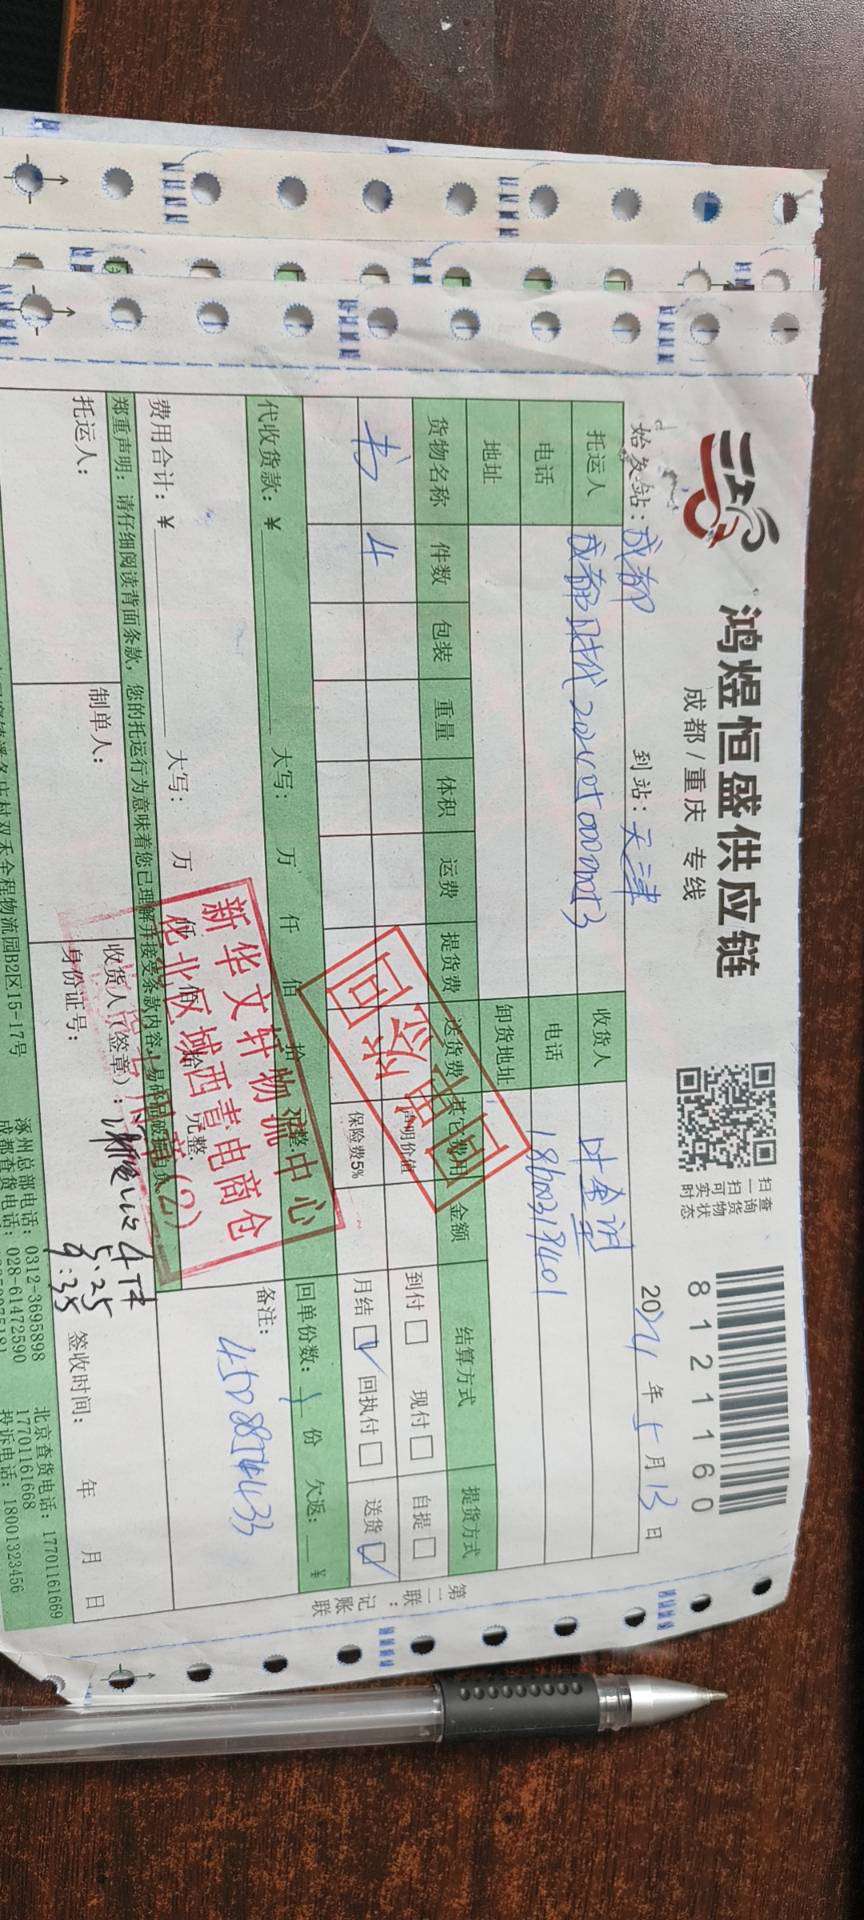 鸿煜恒盛供应链
成都/重庆 专线
扫一扫可实时
查询货物状态
8121160
始发站：成都 到站：天津 2024年5月13日
托运人 成都时代 收货人
电话 电话 18602319401
地址 卸货地址
结算方式 提货方式
货物名称 件数 包装 重量 体积 运费 提货费 送货费 其它费用 金额
书 4
声明价值
保险费5%
到付 现付 自提
月结 回执付 送货
代收货款：¥ 大写： 万 仟 佰 拾 元整. 回单份数：1份 欠返： ¥
备注：
费用合计：¥ 大写： 万 仟 佰 拾 元整.
郑重声明：请仔细阅读背面条款，您的托运行为意味着您已理解并接受条款内容
托运人： 制单人： 收货人（签章）：
身份证号：
5.25
9:35
签收时间： 年 月 日
新华文轩物流中心
华北区域西青电商仓
(2)
第二联：记账联
物流园B2区15-17号
涿州总部电话：0312-3695898
成都查货电话：028-61472590
北京查货电话：17701161669
17701161668
投诉电话：18001323456